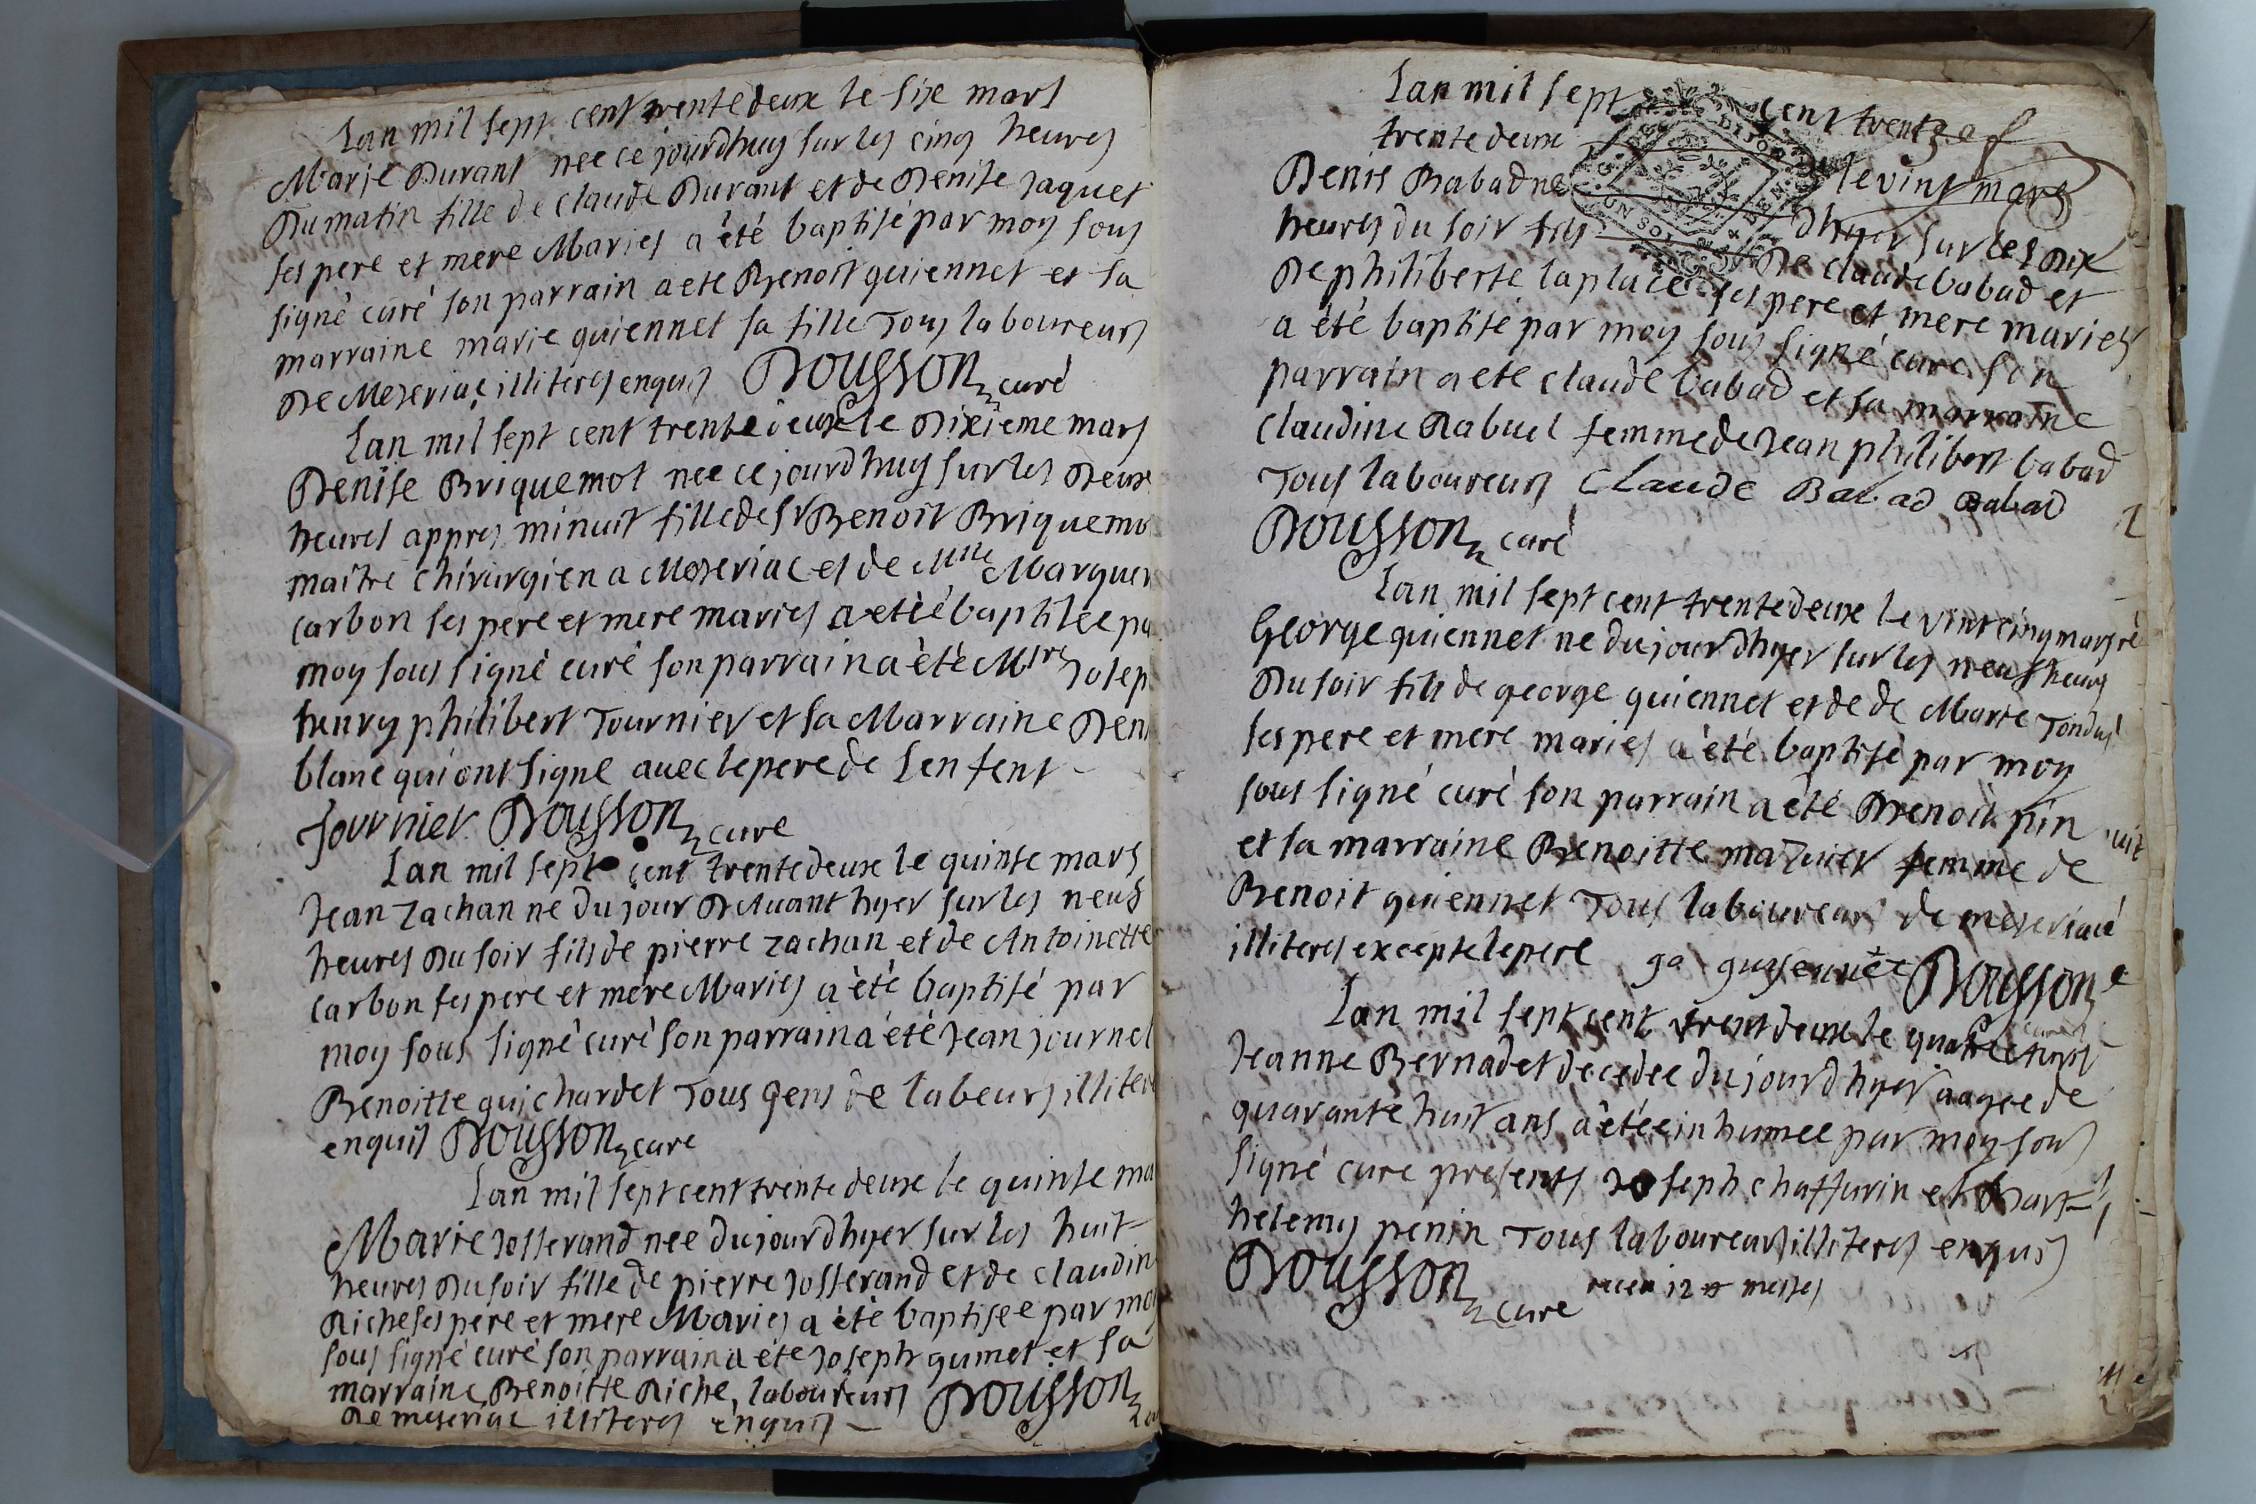 Lan mil sept cent trente deux le sixe mars
Marie Durant nee ce jourdhuy sur les cinq heures
Du matin fille de claude Durant et de Denise Jaquet
ses pere et mere Maries a été baptisé par moy sous
signé curé son parrain a ete Benoit quiennet et sa
marraine marie quiennet sa fille Tous laboureurs
De Mezeriac illiteres enquis Dousson curé
Lan mil sept cent trente deux le Dixieme mars
Denise Briquemot nee ce jourdhuy sur les Deux
heures appres minuit fille de Sr Benoit Briquemo
maitre chirurgien a Mezeriac et de Mlle Marguer
carbon ses pere et mere maries a etéé baptisée pa
moy sous signé curé son parrain a été Mire Josep
henry philibert Tournier et sa Marraine Den
blanc qui ont signe avec le pere de Lenfent
Tournier Dousson cure
Lan mil sept cent trente deux le quinse mars
Jean Zachan ne du jour Devant hyer sur les neuf
heures Du soir fils de pierre zachan et de Antoinette
carbon ses pere et mere Maries a été baptisé par
moy sous signé curé son parrain a été Jean journet
Benoitte guichardet Tous gens de labeurs illitere
enquis Dousson cure
Lan mil sept cent trente deux le quinse ma
Marie Josserand nee du jourdhyer sur les huit
heures Du soir fille de pierre Josserand et de claudin
Riche ses pere et mere Maries a été baptisee par mo
sous signé curé son parrain a éte Joseph gumet et sa
marraine Benoitte Riche, laboureurs Dousson cu
De mezeriac illiteres enquis
Lan mil sept cent trente
trente deux le vint mars
Denis Babad ne dhyer sur les Dix
heures du soir fils De claude babad et
De philiberte laplace ses pere et mere maries
a été baptisé par moy sous signé cure son
parrain a ete claude babad et sa marraine
claudine Rabuel femme de Jean philibert babad
Tous laboureurs Claude Babad Babad
Dousson curé
Lan mil sept cent trente deux le vint cinq mars
George quiennet ne du jourdhyer sur les neuf heures
Du soir fils de george quiennet et de de Marie Tondus
ses pere et mere maries a été baptisé par moy
sous signé curé son parrain a été Benoit pin
et sa marraine Benoitte mazuier femme de
Benoit quiennet Tous laboureurs de mezeriac
illiteres excepte le pere ga guyennet Dousson
Lan mil sept cent trent deux le
Jeanne Bernadet decedee du jourdhyer aagee de
quarante huit ans a étée inhumee par moy sous
signé cure presents Joseph chaffurin et Bart
helemy penin Tous laboureurs illiteres enquis
Dousson cure
receu 12 messes